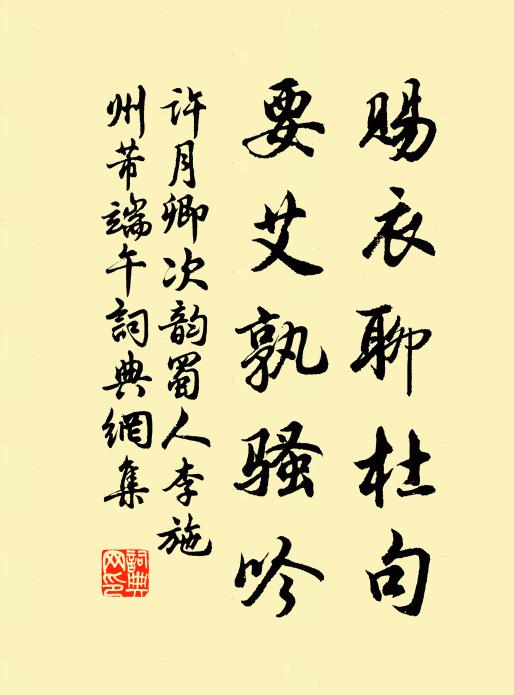 賜衣聊杜句
要艾孰騷吟
許月卿次韵蜀人李施
州芾端午詞典網集
詞典網印